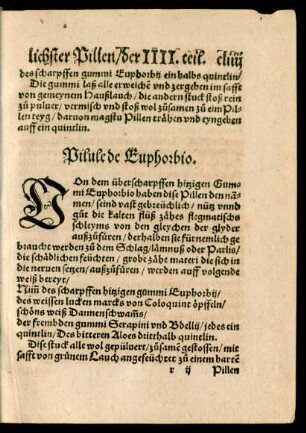 lichster Pillen/der IIII. teil. cliiij
des scharpffen gummi Euphorbij ein halbs quintlin/
Die gummi laß alle erweichẽ vnd zergeben im safft
von gemeynem Haußlauch/die andern stuck stoß rein
zů puluer/vermisch vnd stoß wol zůsamen zů eim Pil-
len teyg/daruon magstu Pillen trähen vnd eyngeben
auff ein quintlin.
Pilule de Euphorbio.
VOn dem überscharpffen hitzigen Gum-
mi Euphorbio haben dise Pillen den nã-
men/seind vast gebreüchlich/nütz vnnd
gůt die kalten flüß zähes flegmatischs
schleyms von den gleychen der glyder
außzůfüren/derhalben sie fürnemlich ge
braucht werden zů dem Schlag/Lämnuß oder Parlis/
die schädlichen feüchten/grobe zähe materi die sich in
die neruen setzen/außzůfüren/werden auff volgende
weiß bereyt/
Nim̃ des scharpffen hitzigen gommi Euphorbij/
des weissen lucken marcks von Coloquint öpffeln/
schöns weiß Dannenschwam̃s/
der frembden gummi Serapini vnd Bdellij/jedes ein
quintlin/Des bitteren Aloes dritthalb quintlin.
Dise stuck alle wol gepüluert/zůsamẽ gestossen/mit
safft von grünem Lauch angefeüchtet zů einem hartẽ
r ij Pillen